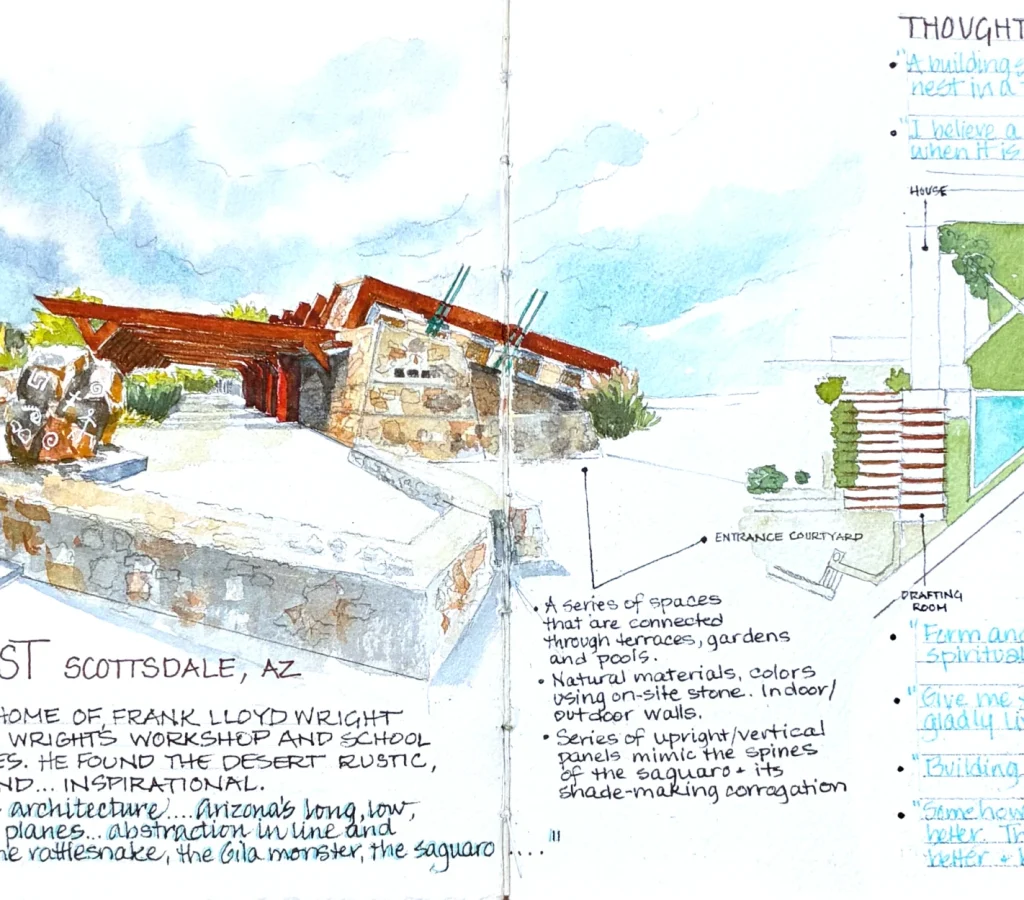 ST SCOTTSDALE, AZ
HOME OF FRANK LLOYD WRIGHT
WRIGHTS WORKSHOP AND SCHOOL
ES. HE FOUND THE DESERT RUSTIC,
ND... INSPIRATIONAL.
architecture.... Arizona's long, low,
planes... abstraction in line and
he rattlesnake, the Gila monster, the saguaro ....
"
ENTRANCE COURTYARD
• A series of spaces
that are connected
through terraces, gardens
and pools.
• Natural materials, colors
using on-site stone. Indoor/
outdoor walls.
• Series of upright/vertical
panels mimic the spines
of the saguaro + its
shade-making corrogation
THOUGHT
• "A building s
nest in a
• "I believe a
when it is
HOUSE
DRAFTING
ROOM
• "Form and
spiritual
• "Give me
gladly li
• "Building
• "Somehow
better. Th
better +